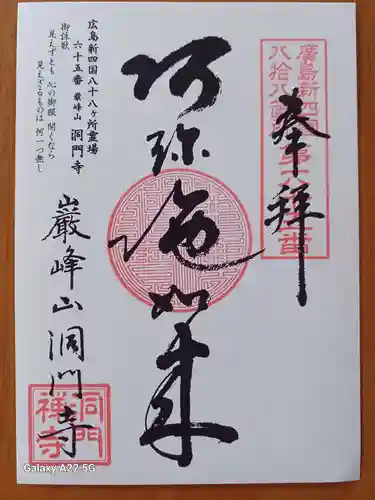 奉拝
廣島新四国
八拾八ヶ所
第六十五番
阿弥陀如来
広島新四国八十八ヶ所霊場
六十五番 巌峰山 洞門寺
御詠歌
見えずとも 心の御眼 開くなら
見えざるものは 何一つ無し
巌峰山洞門寺
洞門
禅寺
Galaxy A22 5G